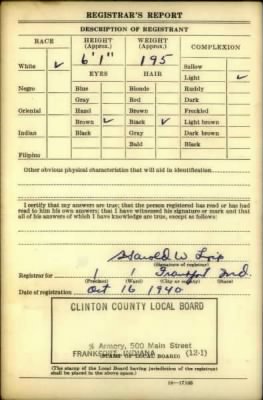 REGISTRAR'S REPORT
DESCRIPTION OF REGISTRANT
RACE HEIGHT (Approx.) WEIGHT (Approx.) COMPLEXION
White ✓ 6'1" 195 Sallow
EYES HAIR Light ✓
Negro Blue Blonde Ruddy
Gray Red Dark
Oriental Hazel Brown Freckled
Brown ✓ Black ✓ Light brown
Indian Black Gray Dark brown
Bald Black
Filipino
Other obvious physical characteristics that will aid in identification
I certify that my answers are true; that the person registered has read or has had
read to him his own answers; that I have witnessed his signature or mark and that
all of his answers of which I have knowledge are true, except as follows:
Harold W.
(Signature of registrar)
Registrar for 1 1 Frankfort Ind.
(Precinct) (Ward) (City or county) (State)
Date of registration Oct 16 1940
CLINTON COUNTY LOCAL BOARD
% Armory, 500 Main Street
FRANKFORT, INDIANA (12-1)
(STAMP OF LOCAL BOARD)
(The stamp of the Local Board having jurisdiction of the registrant
shall be placed in the above space.)